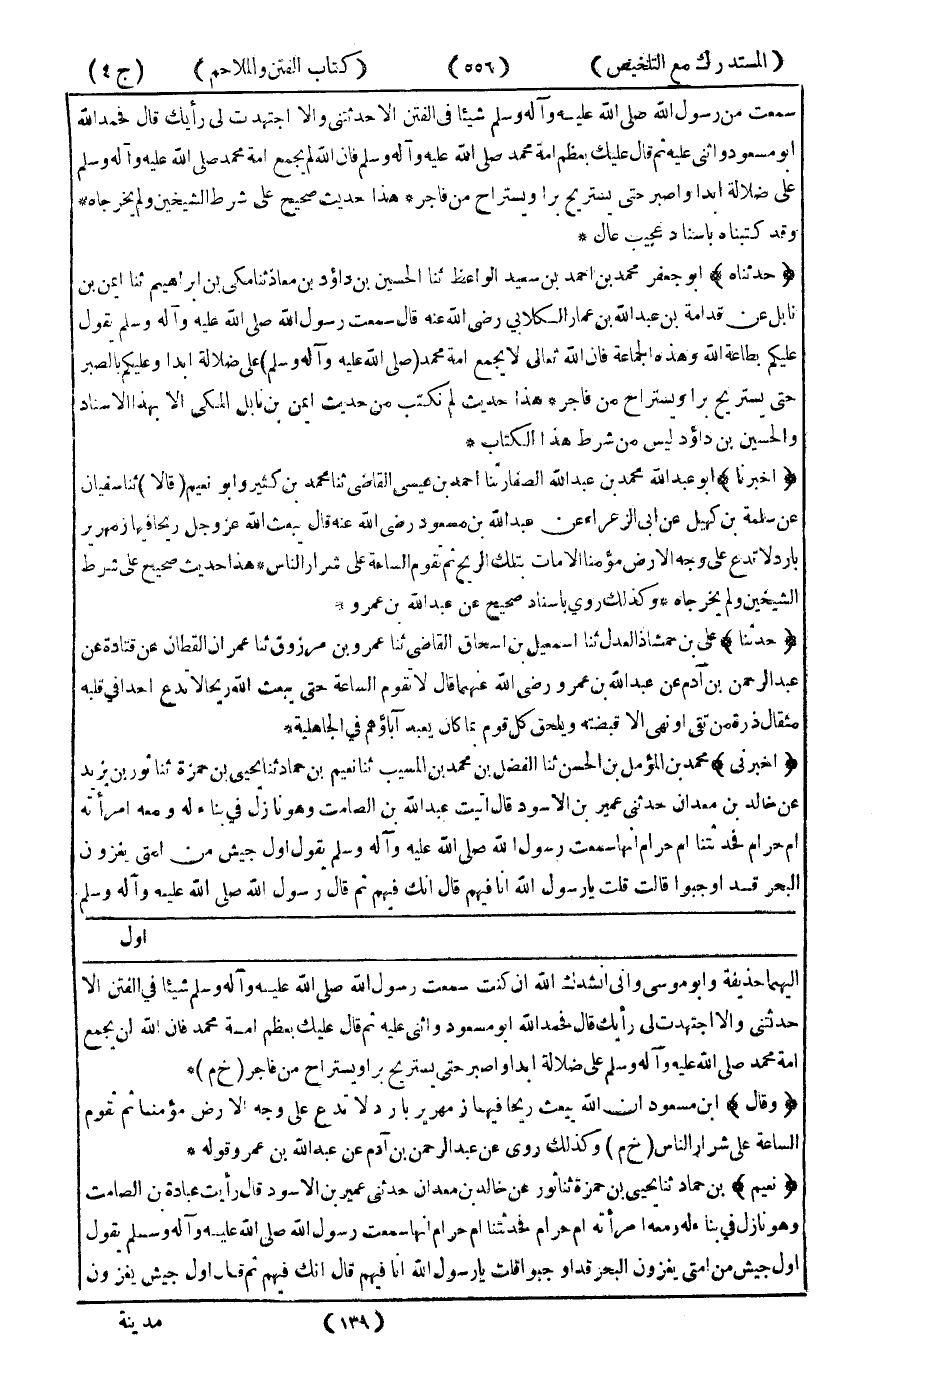 (المستدرك مع التلخيص) (٥٥٦) (كتاب الفتن والملاحم) (ج ٤)
سمعت من رسول الله صلى الله عليه وآله وسلم شيئا فى الفتن الا حدثتنى والا اجتهدت لى رأيك قال فحمد الله
ابو مسعود واثنى عليه ثم قال عليك بعظم امة محمد صلى الله عليه وآله وسلم فان الله لم يجمع امة محمد صلى الله عليه وآله وسلم
على ضلالة ابدا واصبر حتى يستريح برا ويستراح من فاجر * هذا حديث صحيح على شرط الشيخين ولم يخرجاه *
وقد كتبناه باسناد عجيب عال *
﴿ حدثناه ﴾ ابو جعفر محمد بن احمد بن سعيد الواعظ ثنا الحسين بن داؤد بن معاذ ثنا مكى بن ابراهيم ثنا ايمن بن
نابل عن قدامة بن عبدالله بن عمار الكلابي رضى الله عنه قال سمعت رسول الله صلى الله عليه وآله وسلم يقول
عليكم بطاعة الله وهذه الجماعة فان الله تعالى لا يجمع امة محمد (صلى الله عليه وآله وسلم) على ضلالة ابدا وعليكم بالصبر
حتى يستريح برا ويستراح من فاجر * هذا حديث لم نكتب من حديث ايمن بن نابل المكى الا بهذا الاسناد
والحسين بن داؤد ليس من شرط هذا الكتاب *
﴿ اخبرنا ﴾ ابو عبدالله محمد بن عبدالله الصفار ثنا احمد بن عيسى القاضى ثنا محمد بن كثير وابو نعيم (قالا) ثنا سفيان
عن سلمة بن كهيل عن ابى الزعراء عن عبدالله بن مسعود رضى الله عنه قال يبعث الله عز وجل ريحا فيها زمهرير
بارد لا تدع على وجه الارض مؤمنا الا مات بتلك الريح ثم تقوم الساعة على شرار الناس * هذا حديث صحيح على شرط
الشيخين ولم يخرجاه * وكذلك روي باسناد صحيح عن عبدالله بن عمرو *
﴿ حدثنا ﴾ على بن حمشاذ العدل ثنا اسمعيل بن اسحاق القاضى ثنا عمرو بن مرزوق ثنا عمران القطان عن قتادة عن
عبدالرحمن بن آدم عن عبدالله بن عمرو رضى الله عنهما قال لا تقوم الساعة حتى يبعث الله ريحا لا تدع احدا في قلبه
مثقال ذرة من تقى او نهى الا قبضته ويلحق كل قوم بما كان يعبد آباؤهم في الجاهلية *
﴿ اخبرنى ﴾ محمد بن المؤمل بن الحسن ثنا الفضل بن محمد بن المسيب ثنا نعيم بن حماد ثنا يحيى بن حمزة ثنا ثور بن يزيد
عن خالد بن معدان حدثنى عمير بن الاسود قال اتيت عبدالله بن الصامت وهو نازل في بناء له ومعه امرأته
ام حرام فحدثتنا ام حرام انها سمعت رسول الله صلى الله عليه وآله وسلم يقول اول جيش من امتى يغزون
البحر قد اوجبوا قالت قلت يارسول الله انا فيهم قال انك فيهم ثم قال رسول الله صلى الله عليه وآله وسلم
اول
اليهما حذيفة وابو موسى وانى انشدك الله ان كنت سمعت رسول الله صلى الله عليه وآله وسلم شيئا في الفتن الا
حدثتنى والا اجتهدت لى رأيك قال فحمد الله ابو مسعود واثنى عليه ثم قال عليك بعظم امة محمد فان الله لن يجمع
امة محمد صلى الله عليه وآله وسلم على ضلالة ابدا واصبر حتى يستريح برا ويستراح من فاجر (خ م) *
﴿ وقال ﴾ ابن مسعود ان الله يبعث ريحا فيها زمهرير بارد لا تدع على وجه الارض مؤمنا ثم تقوم
الساعة على شرار الناس (خ م) وكذلك روى عن عبدالرحمن بن آدم عن عبدالله بن عمرو قوله *
﴿ نعيم ﴾ بن حماد ثنا يحيى بن حمزة ثنا ثور عن خالد بن معدان حدثنى عمير بن الاسود قال رأيت عبادة بن الصامت
وهو نازل في بناء له ومعه امرأته ام حرام فحدثتنا ام حرام انها سمعت رسول الله صلى الله عليه وآله وسلم يقول
اول جيش من امتى يغزون البحر قد اوجبوا قلت يارسول الله انا فيهم قال انك فيهم ثم قال اول جيش يغزون
(١٣٩) مدينة